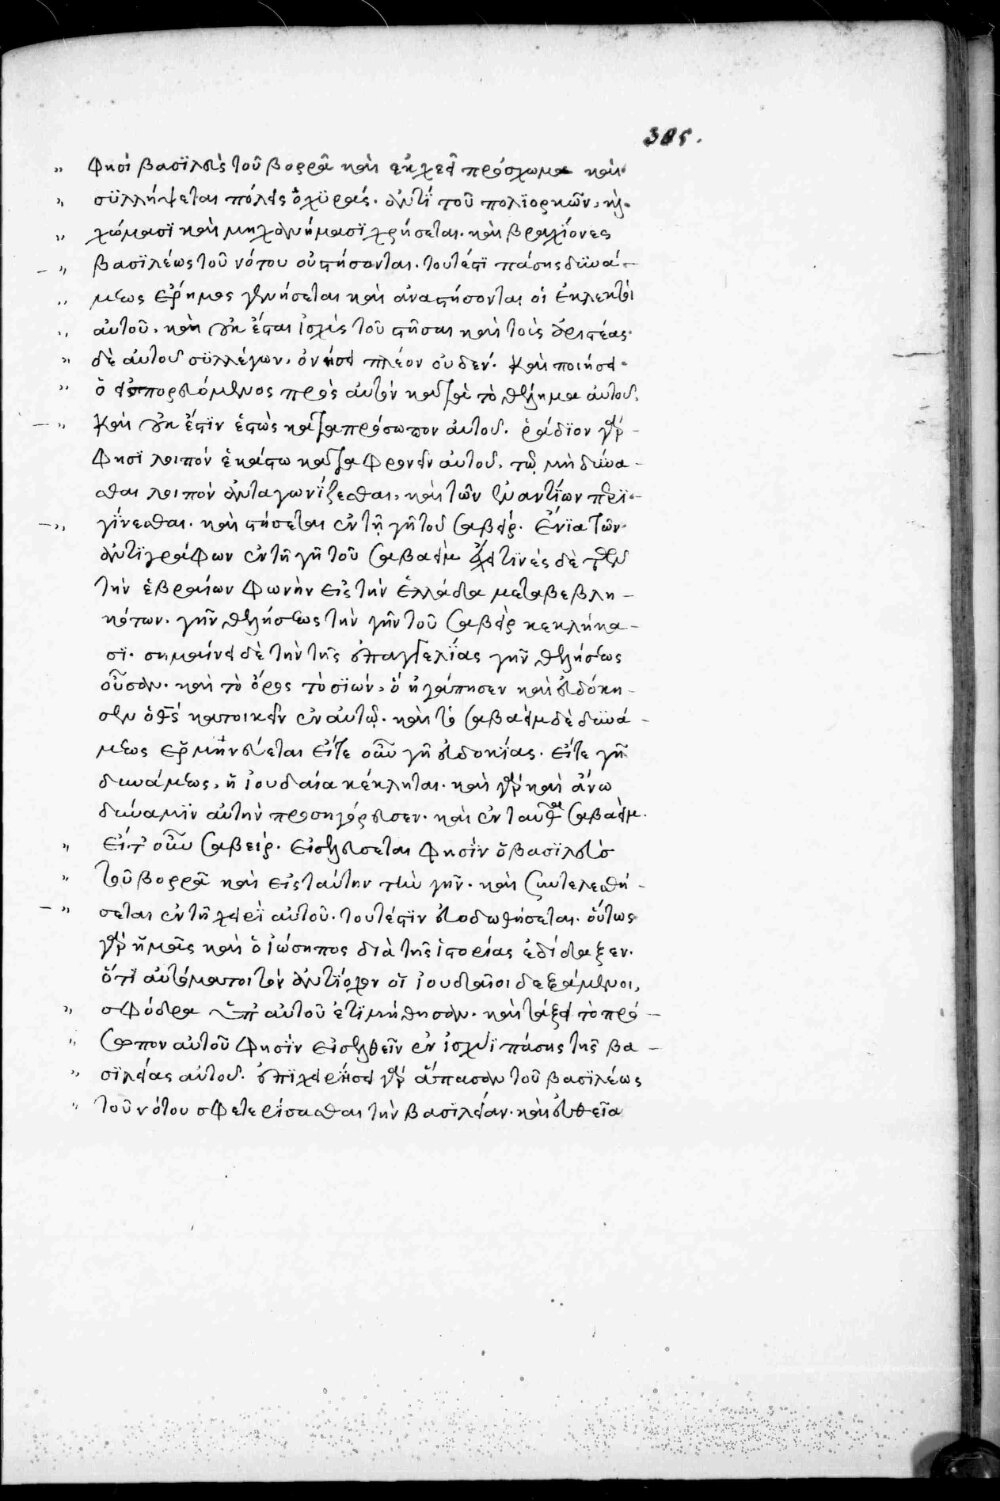 385.
" φησὶ βασϊλεὺς τοῦ βορρᾶ καὶ ἐκχεεῖ πρόσχωμα καὶ
" σϋλλήψεται πόλεις ὀχϋράς. ἀντὶ τοῦ πολϊορκῶν, καὶ
" χώμασϊ καὶ μηχανήμασϊ χρήσεται. καὶ βραχϊόνες
– " βασϊλέως τοῦ νότου οὐ στήσονται. τουτέστϊ πάσης δϋνά–
" μεως ἔρημος γενήσεται καὶ ἀναστήσονται οἱ ἐκλεκτοὶ
" αὐτοῦ, καὶ οὐκ ἔσται ἰσχὺς τοῦ στῆσαι καὶ τοὺς ἀριστέας
" δὲ αὐτοῦ σϋλλέγων, ὀνήσει πλέον οὐδέν. καὶ ποιήσει
" ὁ εἰσπορευόμενος πρὸς αὐτὸν κατὰ τὸ θέλημα αὐτοῦ,
– " καὶ οὐκ ἔστϊν ἑστὼς κατὰ πρόσωπον αὐτοῦ. ῥάδϊον γὰρ –
φησϊ λοιπὸν ἑκάστω καταφρονεῖν αὐτοῦ, τῷ μὴ δύνα–
σθαι λοιπὸν ἀνταγωνίζεσθαι, καὶ τῶν ἐναντίων περϊ–
– " γΐνεσθαι. καὶ στήσεται ἐν τῇ γῇ τοῦ σαβείρ. ἔνϊα τῶν
ἀντϊγράφων ἐν τῇ γῇ τοῦ σαβαεὶμ ἔχει τϊνὲς δὲ τῶν
τὴν ἑβραίων φωνὴν εἰς τὴν ἑλλάδα μεταβεβλη–
κότων, γῆν θελήσεως τὴν γῆν τοῦ σαβεὶρ κεκλήκα–
σϊ. σημαίνει δὲ τὴν τῆς ἐπαγγελΐας γῆν θελήσεως
οὖσαν. καὶ τὸ ὄρος τὸ σϊών, ὃ ἠγάπησεν καὶ εὐδόκη–
σεν ὁ θς κατοικεῖν ἐν αὐτῷ. καὶ τὸ σαβαεὶμ δὲ δϋνά–
μεως ἑρμηνεύεται εἴτε οὖν γῆ εὐδοκίας. εἴτε γῆ
δυνάμεως, ἡ ἰουδαία κέκληται. καὶ γὰρ καὶ ἄνω
δύναμϊν αὐτὴν προσηγόρευσεν. καὶ ἐνταῦθα σαβαεὶμ.
" εἴτ' οὖν σαβείρ. εἰσελεύσεται φησὶν ὁ βασϊλεὺς
" τοῦ βορρᾶ καὶ εἰς ταύτην τὴν γῆν. καὶ συντελεσθή–
– " σεται ἐν τῇ χειρὶ αὐτοῦ. τουτέστϊν εὐοδωθήσεται. οὕτως
γὰρ ἡμᾶς καὶ ὁ ἰώσηπος διὰ τῆς ἱστορίας ἐδίδαξεν.
ὅτϊ αὐτόματοι τὸν ἀντΐοχον οἱ ἰουδαῖοι δεξάμενοι,
" σφόδρα ὑπ' αὐτοῦ ἐτϊμήθησαν. καὶ τάξει τὸ πρό–
" σωπον αὐτοῦ φησὶν εἰσελθεῖν ἐν ἰσχύϊ πάσης τῆς βα–
" σϊλείας αὐτοῦ. ἐπϊχειρήσει γὰρ ἅπασαν τοῦ βασϊλέως
" τοῦ νότου σφετερίσασθαι τὴν βασϊλείαν. καὶ εὐθεῖα